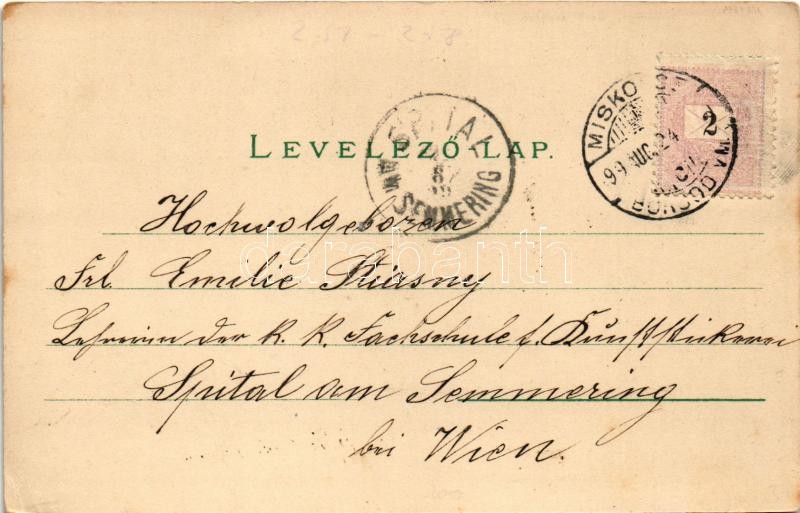 2
MISKO
99 AUG. 24
BORSOD VM
SPITAL
AM SEMMERING
LEVELEZŐ LAP.
Hochwolgeboren
Frl. Emilie Stiasny
Lehrerin der k. k. Fachschule f. Kunststickerei
Spital am Semmering
bei Wien.
darabanth